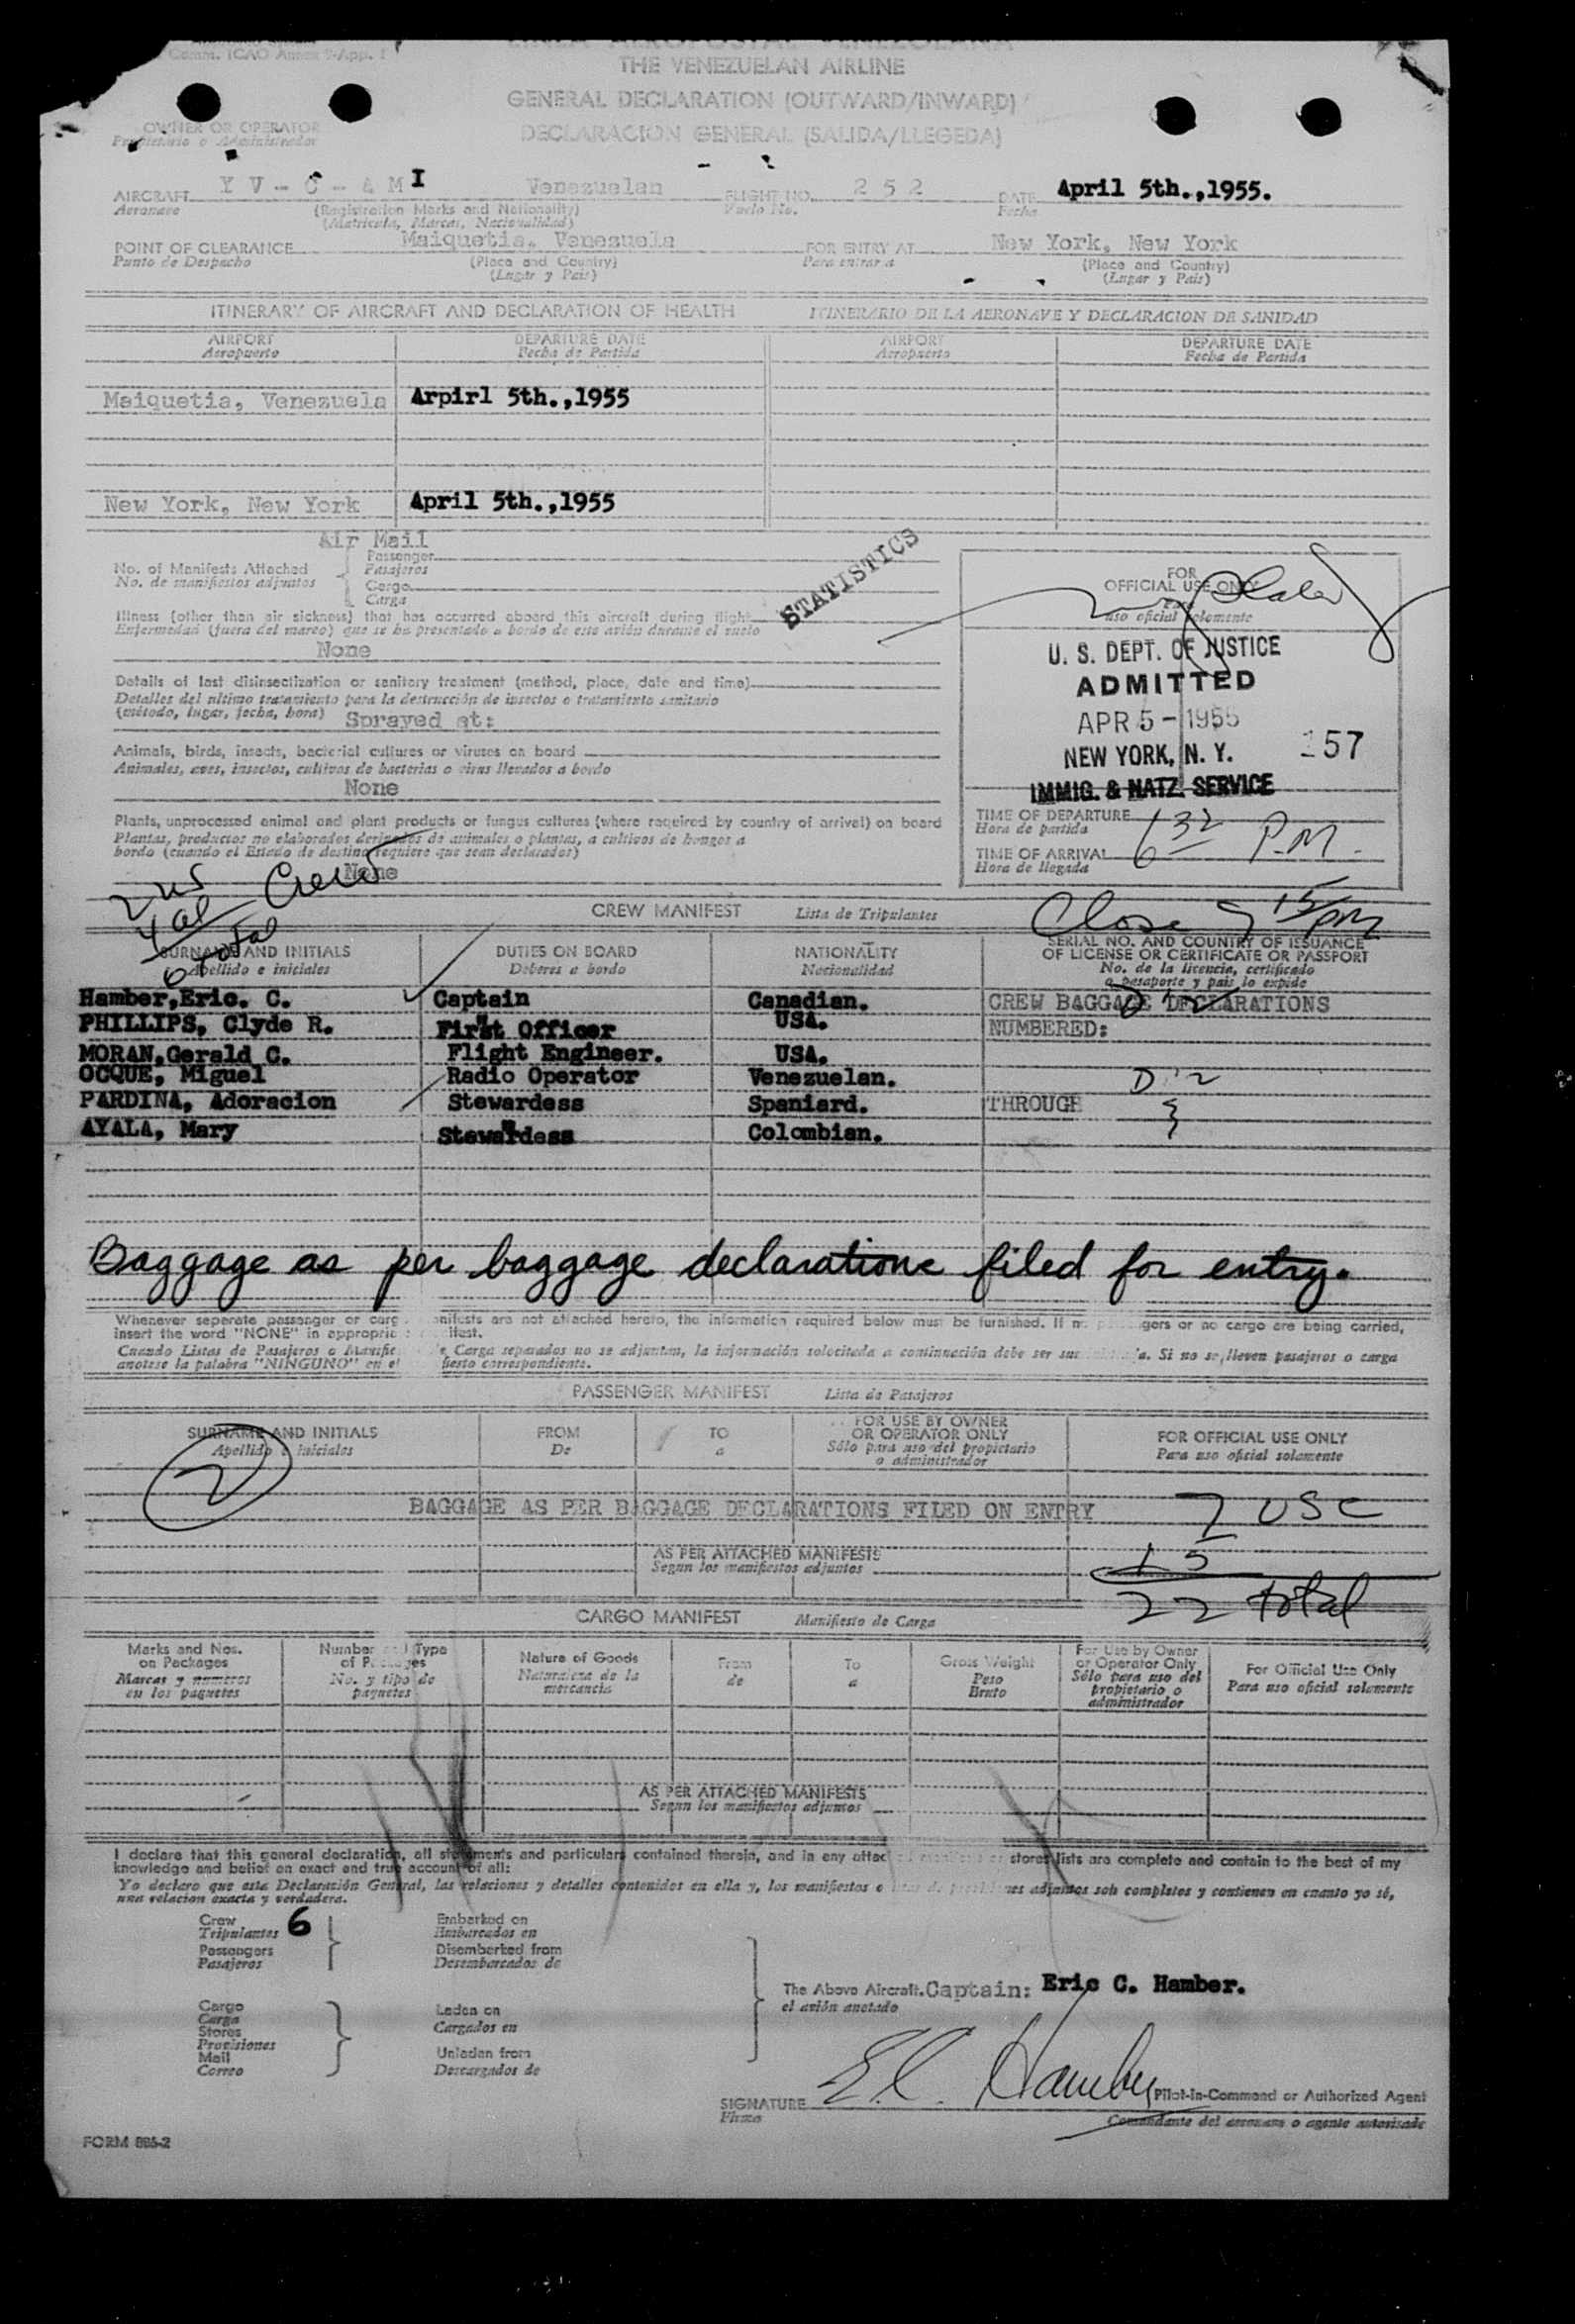 Comm. ICAO Annex 9-App. 1
LINEA AEROPOSTAL VENEZOLANA
THE VENEZUELAN AIRLINE
GENERAL DECLARATION (OUTWARD/INWARD)
DECLARACION GENERAL (SALIDA/LLEGEDA)
OWNER OR OPERATOR
Propietario o Administrador
AIRCRAFT YV-C-AMI Venezuelan FLIGHT NO. 252 DATE April 5th.,1955.
Aeronave (Registration Marks and Nationality) Vuelo No. Fecha
(Matricula, Marcas, Nacionalidad)
POINT OF CLEARANCE Maiquetia, Venezuela FOR ENTRY AT New York, New York
Punto de Despacho (Place and Country) Para entrar a (Place and Country)
(Lugar y Pais) (Lugar y Pais)
ITINERARY OF AIRCRAFT AND DECLARATION OF HEALTH ITINERARIO DE LA AERONAVE Y DECLARACION DE SANIDAD
AIRPORT DEPARTURE DATE AIRPORT DEPARTURE DATE
Aeropuerto Fecha de Partida Aeropuerto Fecha de Partida
Maiquetia, Venezuela Arpirl 5th.,1955
New York, New York April 5th.,1955
Air Mail
No. of Manifests Attached Passenger
No. de manifiestos adjuntos Pasajeros
Cargo
Carga
STATISTICS
Illness (other than air sickness) that has occurred aboard this aircraft during flight
Enfermedad (fuera del mareo) que se ha presentado a bordo de este avión durante el vuelo
None
Details of last disinsectization or sanitary treatment (method, place, date and time)
Detalles del ultimo tratamiento para la destrucción de insectos o tratamiento sanitario
(método, lugar, fecha, hora) Sprayed at:
Animals, birds, insects, bacterial cultures or viruses on board
Animales, aves, insectos, cultivos de bacterias o virus llevados a bordo
None
Plants, unprocessed animal and plant products or fungus cultures (where required by country of arrival) on board
Plantas, productos no elaborados derivados de animales o plantas, a cultivos de hongos a
bordo (cuando el Estado de destino requiere que sean declarados)
None
FOR
OFFICIAL USE ONLY
uso oficial solamente
U. S. DEPT. OF JUSTICE
ADMITTED
APR 5 - 1955
NEW YORK, N. Y. 157
IMMIG. & NATZ. SERVICE
TIME OF DEPARTURE
Hora de partida
6 32 P.M.
TIME OF ARRIVAL
Hora de llegada
2 us Crew
4 al
6 total
Close 9 15 PM
CREW MANIFEST Lista de Tripulantes
SURNAME AND INITIALS DUTIES ON BOARD NATIONALITY SERIAL NO. AND COUNTRY OF ISSUANCE
OF LICENSE OR CERTIFICATE OR PASSPORT
Apellido e iniciales Deberes a bordo Nacionalidad No. de la licencia, certificado
o pasaporte y pais lo expide
Hamber,Eric. C. Captain Canadian. CREW BAGGAGE DECLARATIONS
PHILLIPS, Clyde R. First Officer USA. NUMBERED:
MORAN,Gerald C. Flight Engineer. USA.
OCQUE, Miguel Radio Operator Venezuelan.
PARDINA, Adoracion Stewardess Spaniard. THROUGH
AYALA, Mary Stewardess Colombian.
Baggage as per baggage declarations filed for entry.
Whenever seperate passenger or carg onifests are not attached hereto, the information required below must be furnished. If n gers or no cargo are being carried,
insert the word "NONE" in appropric ifest.
Cuando Listas de Pasajeros o Manifie Carga separados no se adjuntan, la información solocitada a continuación debe ser sus a. Si no se lleven pasajeros o carga
anotese la palabra "NINGUNO" en el fiesto correspondiente.
PASSENGER MANIFEST Lista de Pasajeros
SURNAME AND INITIALS FROM TO FOR USE BY OWNER
OR OPERATOR ONLY FOR OFFICIAL USE ONLY
Apellido e iniciales De a Sólo para uso del propietario
o administrador Para uso oficial solamente
2
BAGGAGE AS PER BAGGAGE DECLARATIONS FILED ON ENTRY 7 USC
AS PER ATTACHED MANIFESTS 15
Segun los manifiestos adjuntos
22 total
CARGO MANIFEST Manifiesto de Carga
Marks and Nos.
on Packages
Marcas y numeros
en los paquetes
Number Type
of P es
No. y tipo de
paquetes
Nature of Goods
Naturaleza de la
mercancia
From
de
To
a
Gross Weight
Peso
Bruto
For Use by Owner
or Operator Only
Sólo para uso del
propietario o
administrador
For Official Use Only
Para uso oficial solamente
AS PER ATTACHED MANIFESTS
Segun los manifiestos adjuntos
I declare that this general declaration, all statements and particulars contained therein, and in any attac stores lists are complete and contain to the best of my
knowledge and belief an exact and true account of all:
Yo declaro que esta Declaración General, las relaciones y detalles contenidos en ella y, los manifiestos adjuntos son completos y contienen en cuanto yo sé,
una relacion exacta y verdadera.
Crew 6 Embarked on
Tripulantes Embarcados en
Passengers Disembarked from
Pasajeros Desembarcados de
The Above Aircraft. Captain: Eric C. Hamber.
el avión anotado
Cargo Laden on
Carga Cargados en
Stores
Provisiones
Mail Unladen from
Correo Descargados de
E.C. Hamber
SIGNATURE Pilot-in-Command or Authorized Agent
Firma Comandante del aeronave o agente autorizado
FORM 886-2